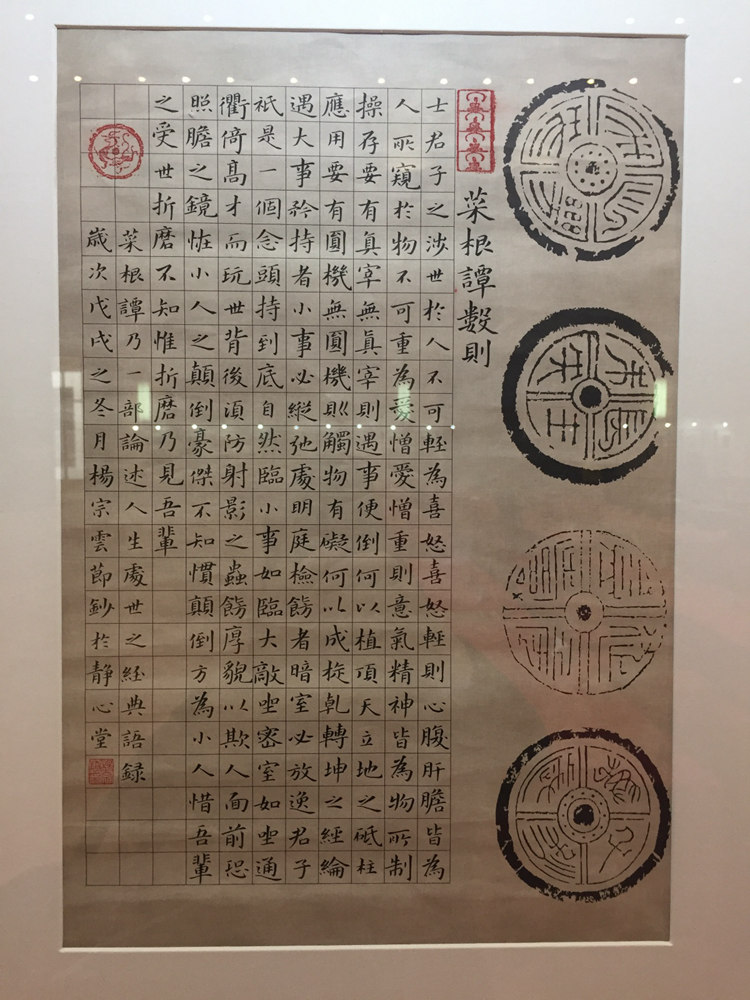 菜根譚數則
士君子之涉世於人不可輕為喜怒喜怒輕則心腹肝膽皆為
人所窺於物不可重為愛憎愛憎重則意氣精神皆為物所制
操存要有真宰無真宰則遇事便倒何以植頂天立地之砥柱
應用要有圓機無圓機則觸物有礙何以成旋乾轉坤之經綸
遇大事矜持者小事必縱弛處明庭檢飭者暗室必放逸君子
衹是一個念頭持到底自然臨小事如臨大敵坐密室如坐通
衢倚高才而玩世背後須防射影之蟲飾厚貌以欺人面前恐
照膽之鏡恠小人之顛倒豪傑不知慣顛倒方為小人惜吾輩
之受世折磨不知惟折磨乃見吾輩
菜根譚乃一部論述人生處世之經典語録
歲次戊戌之冬月楊宗雲節鈔於靜心堂